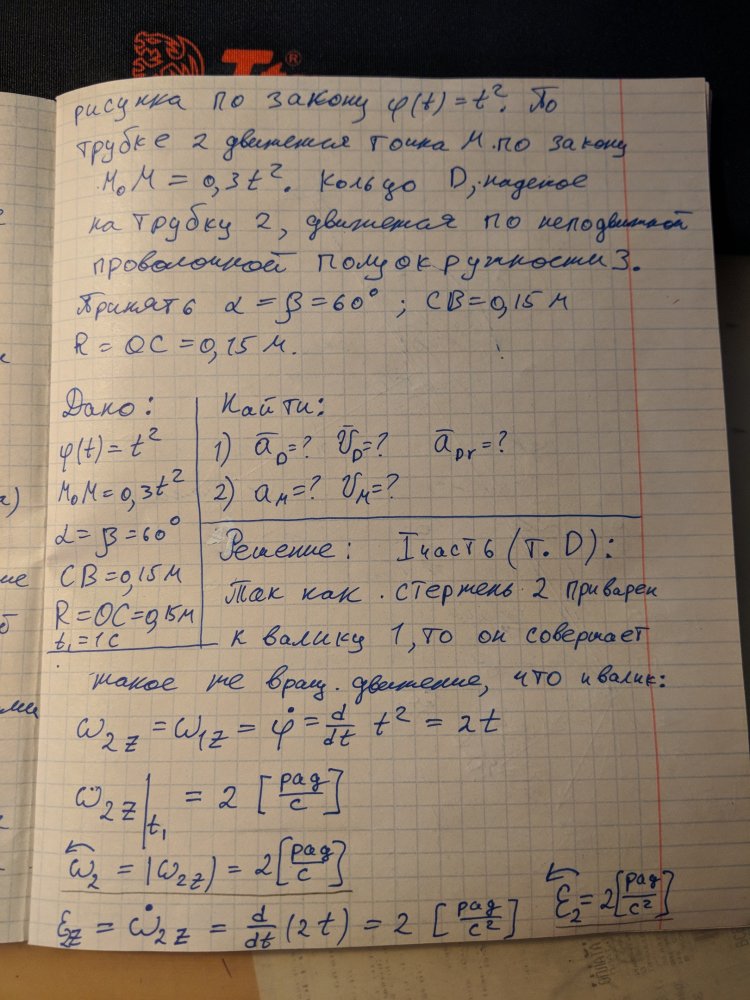 T
®
рисунка по закону φ(t) = t². По
трубке 2 движется точка M по закону
M₀M = 0,3t². Кольцо D, надетое
на трубку 2, движется по неподвижной
проволочной полуокружности 3.
Принять α = β = 60°; CB = 0,15 м
R = OC = 0,15 м.
Дано:
φ(t) = t²
M₀M = 0,3t²
α = β = 60°
CB = 0,15 м
R = OC = 0,15 м
t₁ = 1 c
Найти:
1) a̅_D = ? V̅_D = ? a̅_Dr = ?
2) a_M = ? V_M = ?
Решение: I часть (т. D):
Так как стержень 2 приварен
к валику 1, то он совершает
такое же вращ. движение, что и валик:
ω₂z = ω₁z = φ̇ = d/dt t² = 2t
ω₂z|t₁ = 2 [рад/с]
ω₂ = |ω₂z| = 2 [рад/с]
ε₂z = ω̇₂z = d/dt (2t) = 2 [рад/с²] ε₂ = 2 [рад/с²]